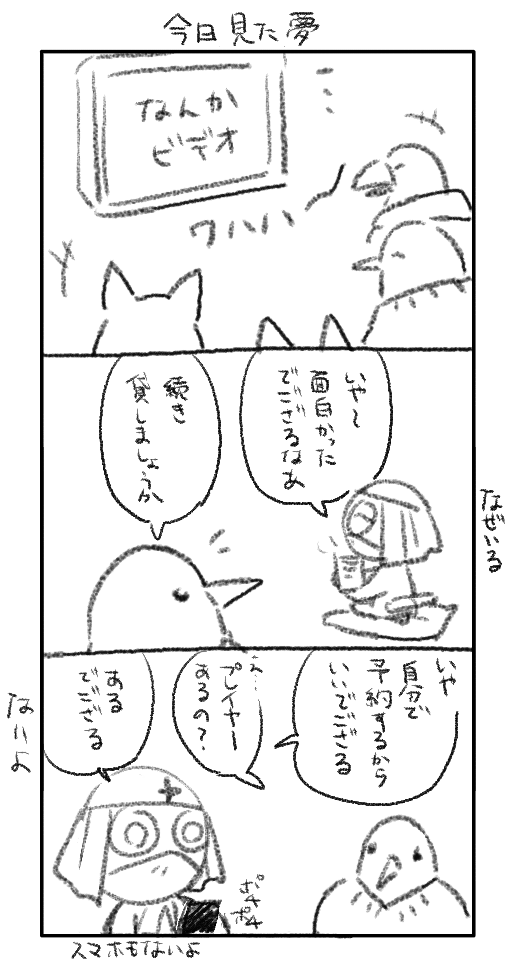 今日見た夢
なんか
ビデオ
ワハハ
いや〜
面白かった
でござるなあ
続き
貸しましょうか
なぜいる
いや
自分で
予約するから
いいでござる
え…
プレイヤー
あるの?
ある
でござる
ないよ
ポチ
ポチ
スマホもないよ